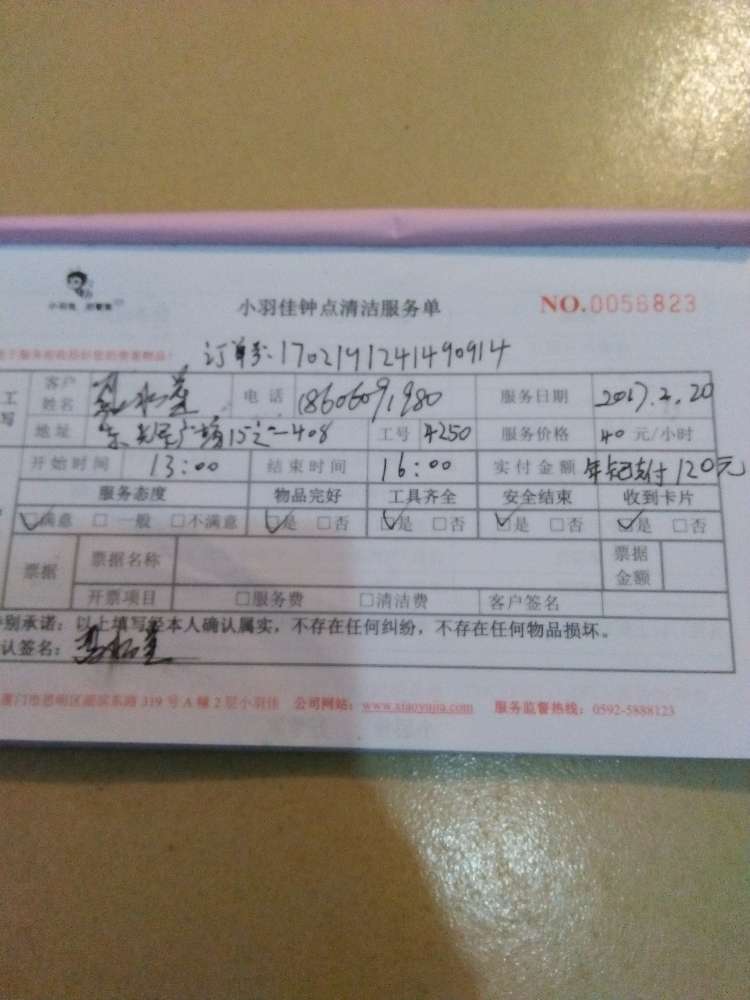 小羽佳钟点清洁服务单 NO.0056823
订单号:1702191241490914
客户姓名 电话 18606091980 服务日期 2017.2.20
地址 广场15之一408 工号 4250 服务价格 40 元/小时
开始时间 13:00 结束时间 16:00 实付金额 年纪支付120元
服务态度 物品完好 工具齐全 安全结束 收到卡片
☑满意 □一般 □不满意 ☑是 □否 ☑是 □否 ☑是 □否 ☑是 □否
票据 票据名称 票据金额
开票项目 □服务费 □清洁费 客户签名
别承诺：以上填写经本人确认属实，不存在任何纠纷，不存在任何物品损坏。
认签名：
厦门市思明区湖滨东路 319 号 A 幢 2 层小羽佳 公司网站：www.xiaoyujia.com 服务监督热线：0592-5888123